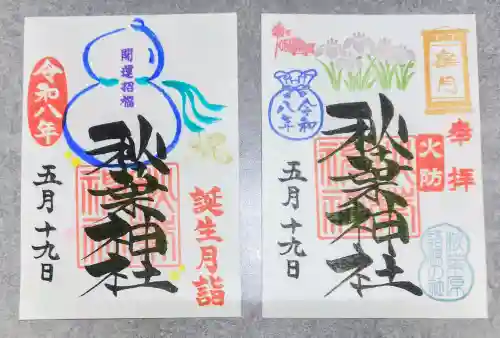 開運招福
令和八年
秋葉神社
五月十九日
誕生月詣
皐月
令和八年
奉拝
火防
秋葉神社
五月十九日